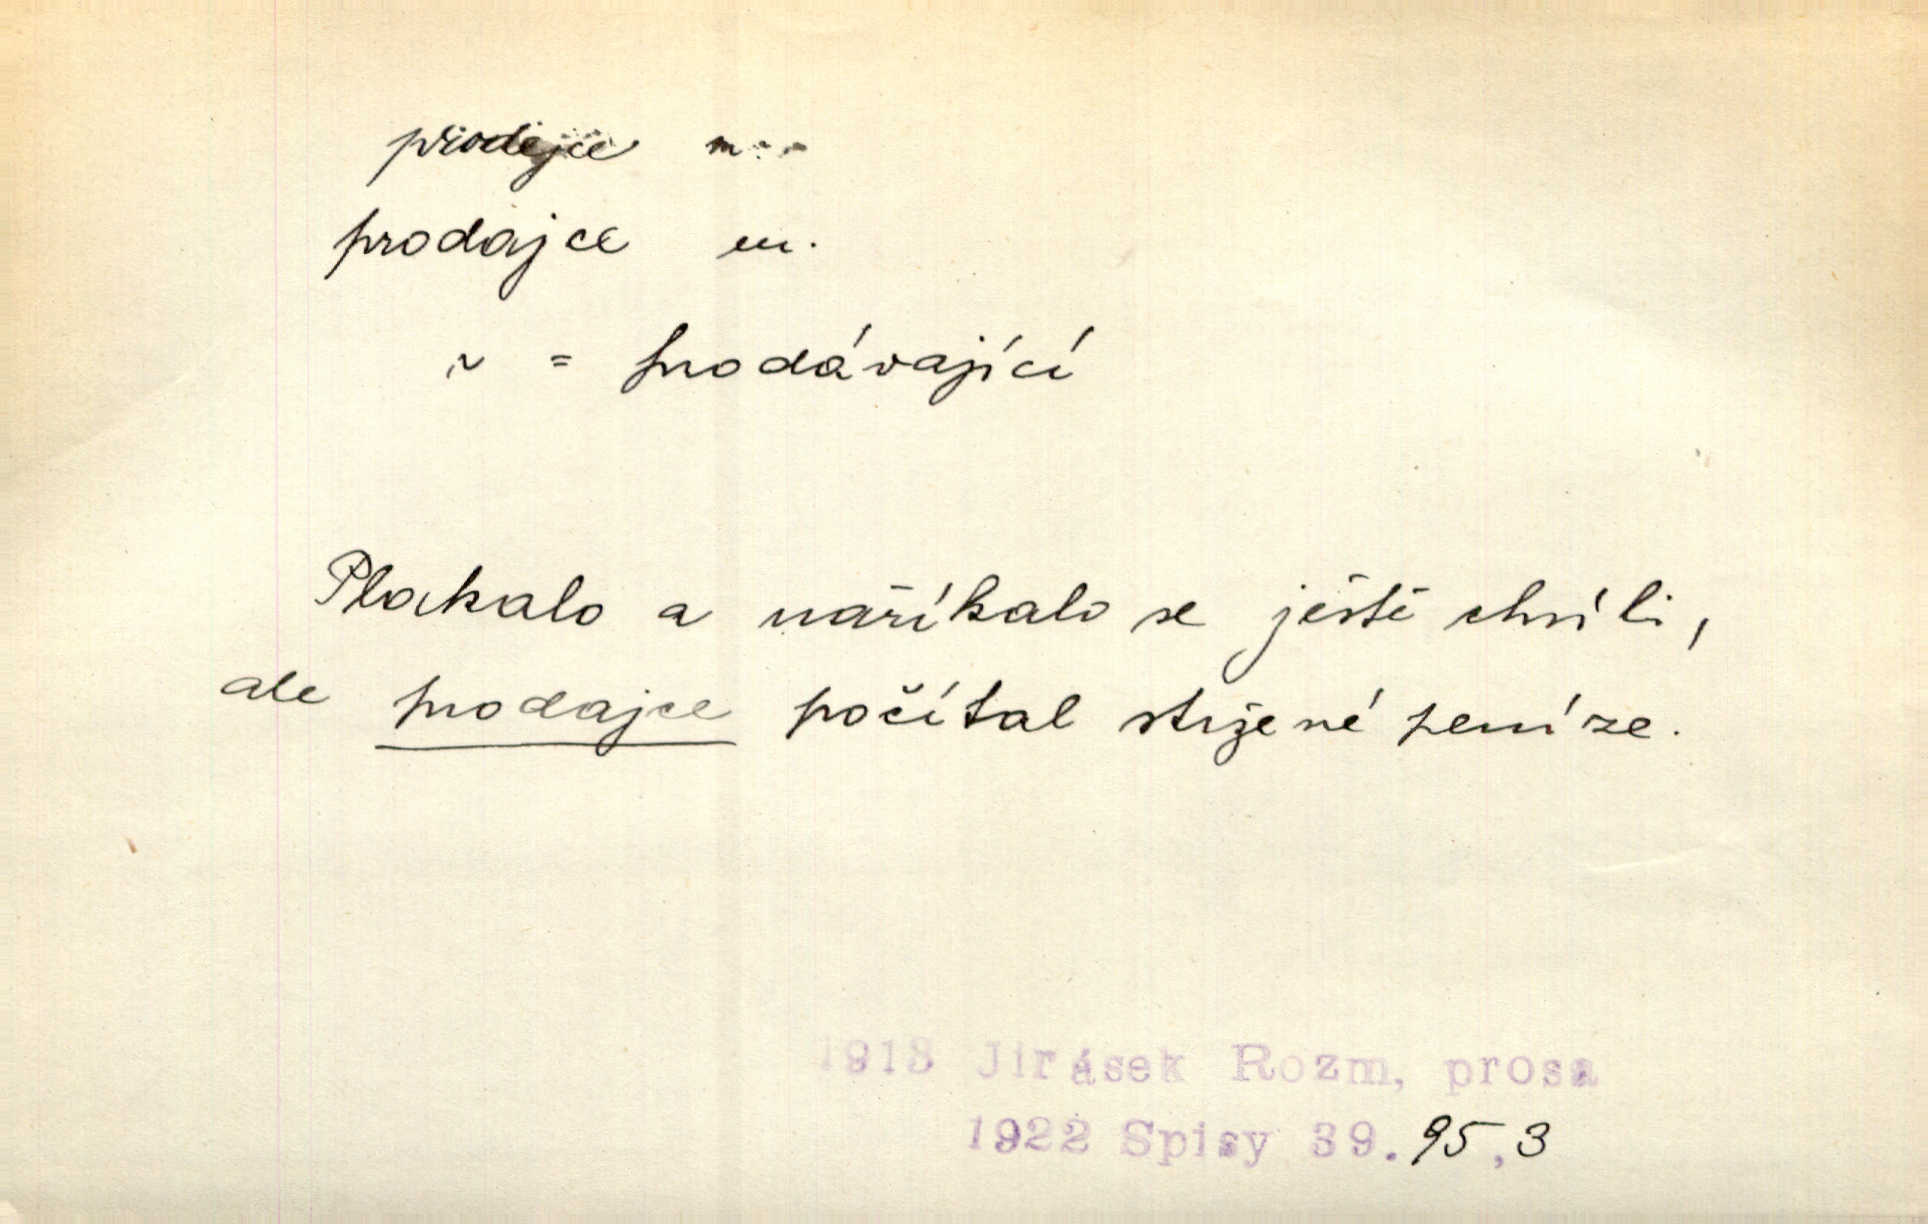 prodejce m.
prodajce m.
~ = prodávající
Plakalo a naříkalo se ještě chvíli,
ale prodajce počítal stržené peníze.
1918 Jirásek Rozm, prosa
1922 Spisy 39.95,3